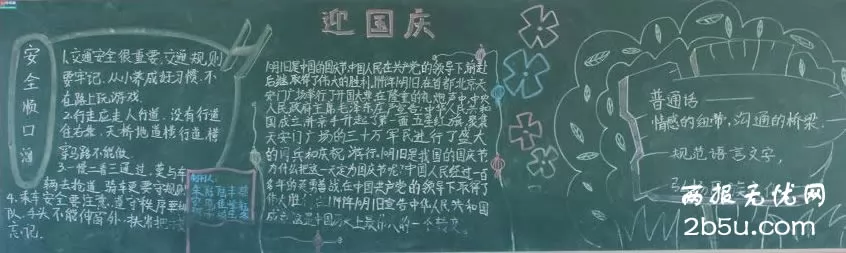 迎国庆
安全顺口溜
1.交通安全很重要,交通规则
要牢记,从小养成好习惯,不
在路上玩游戏.
2.行走应走人行道,没有行道
往右靠,天桥地道横行道,横
穿马路不能做.
3.一慢二看三通过,莫与车
辆去抢道.骑车更要守规则
4.乘车安全要注意,遵守秩序要
队,手头不能伸窗外,扶紧把
言记.
10月1日是中国的国庆节.中国人民在共产党的领导下,前赴
后继,取得了伟大的胜利.1949年10月1日,在首都北京天
安门广场举行了开国大典,在隆重的礼炮声中,中央
人民政府主席毛泽东庄严宣告中华人民共和
国成立,并亲手升起了第一面五星红旗.聚集
天安门广场的三十万军民进行了盛大
的阅兵和庆祝游行.10月1日是我国的国庆节
为什么把这一天定为国庆节呢?中国人民经过一百
多年的英勇奋战,在中国共产党的领导下,取得了
伟大胜利,1949年10月1日宣告中华人民共和国
成立.这是中国历史上最伟大的一个转变.
普通话——
情感的纽带,沟通的桥梁.
规范语言文字,
两报无忧网
2b5u.com